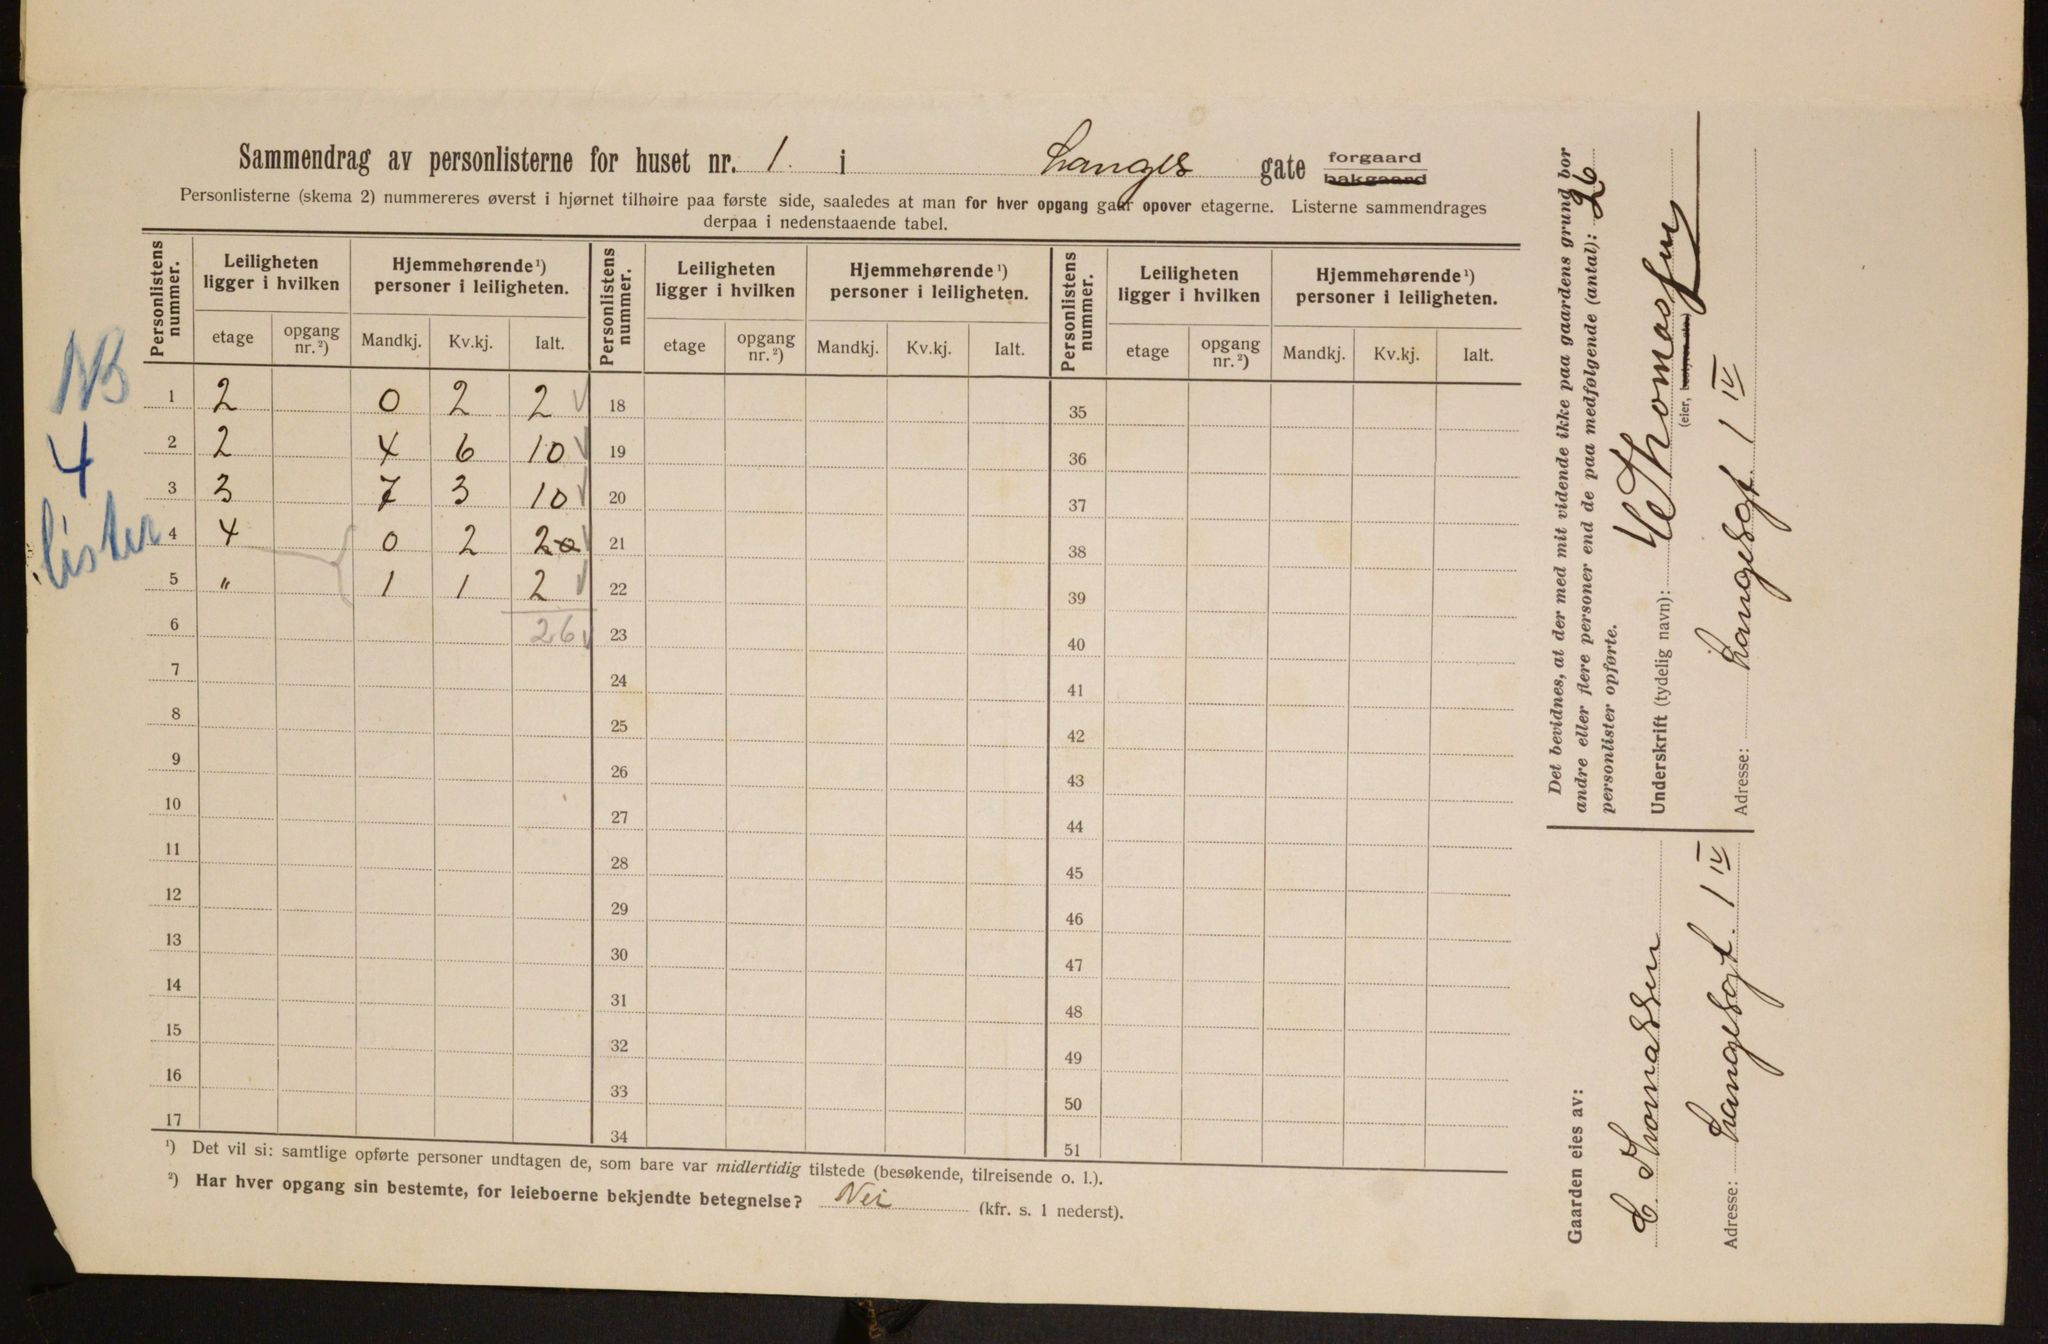 Sammendrag av personlisterne for huset nr. 1. i Langes gate forgaard bakgaard
Personlisterne (skema 2) nummereres øverst i hjørnet tilhøire paa første side, saaledes at man for hver opgang gaar opover etagerne. Listerne sammendrages
derpaa i nedenstaaende tabel.
Personlistens nummer. Leiligheten ligger i hvilken Hjemmehørende ¹) personer i leiligheten. Personlistens nummer. Leiligheten ligger i hvilken Hjemmehørende ¹) personer i leiligheten. Personlistens nummer. Leiligheten ligger i hvilken Hjemmehørende ¹) personer i leiligheten.
etage opgang nr. ²) Mandkj. Kv.kj. Ialt. etage opgang nr. ²) Mandkj. Kv.kj. Ialt. etage opgang nr. ²) Mandkj. Kv.kj. Ialt.
NB
4
lister
1 2 0 2 2 18 35
2 2 4 6 10 19 36
3 3 7 3 10 20 37
4 4 0 2 2 21 38
5 " 1 1 2 22 39
6 26 23 40
7 24 41
8 25 42
9 26 43
10 27 44
11 28 45
12 29 46
13 30 47
14 31 48
15 32 49
16 33 50
17 34 51
¹) Det vil si: samtlige opførte personer undtagen de, som bare var midlertidig tilstede (besøkende, tilreisende o. l.).
²) Har hver opgang sin bestemte, for leieboerne bekjendte betegnelse? Nei (kfr. s. 1 nederst).
Det bevidnes, at der med mit vidende ikke paa gaardens grund bor
andre eller flere personer end de paa medfølgende (antal): 26
personlister opførte.
Underskrift (tydelig navn): Thomassen
(eier, bestyrer etc.)
Adresse: Langesgt. 1 IV
Gaarden eies av:
C. Thomassen
Adresse: Langesgt. 1 IV